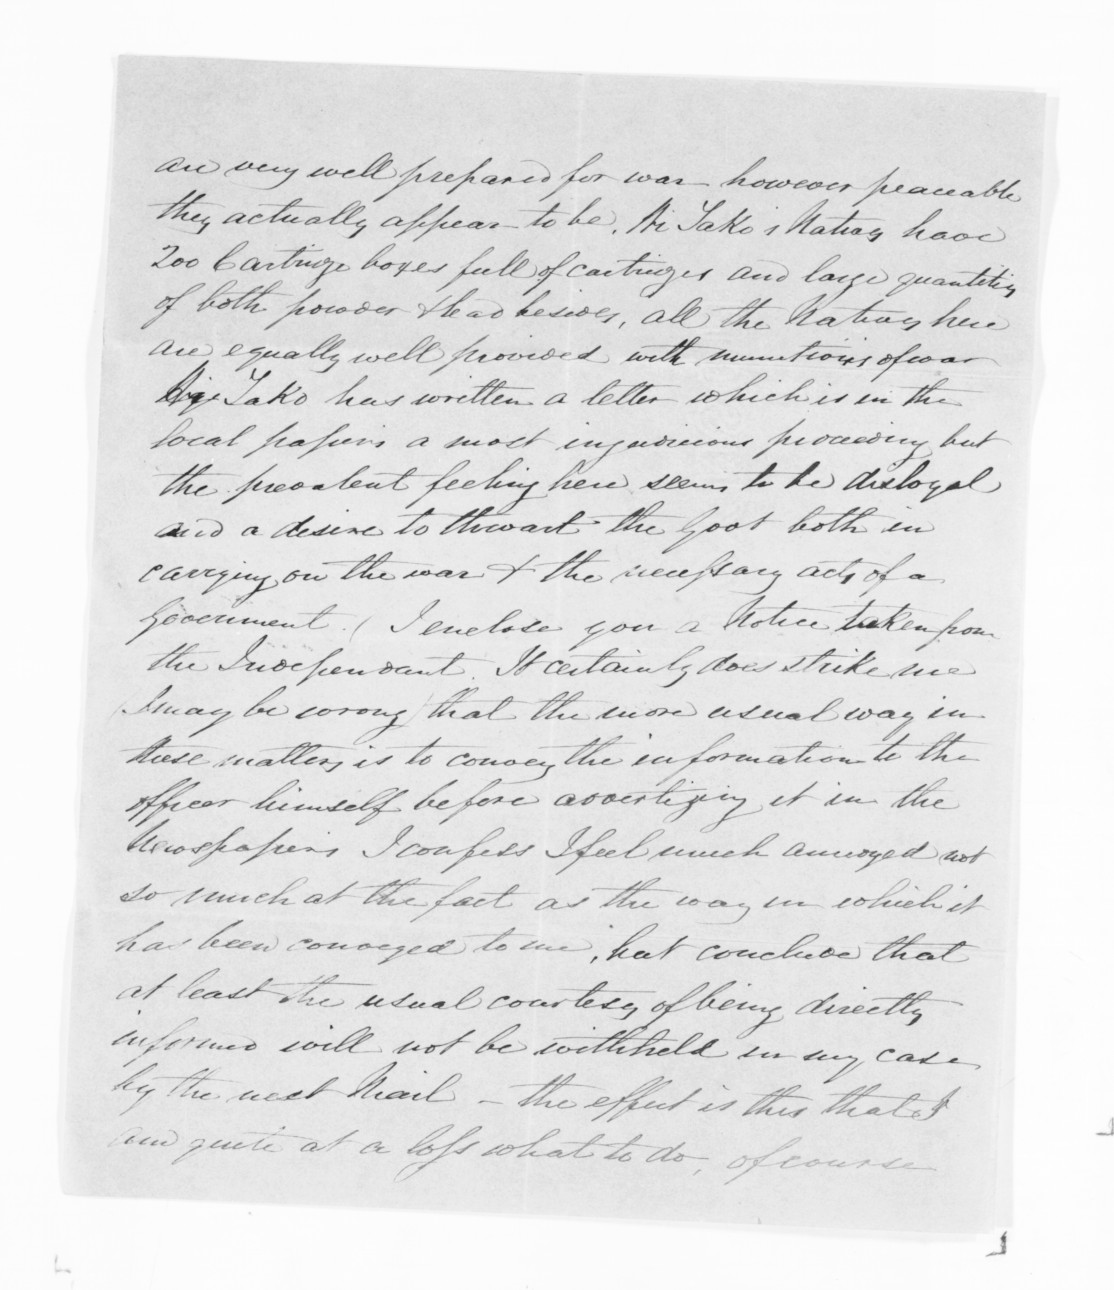 are very well prepared for war however peaceable
they actually appear to be. Wi Tako's Natives have
200 Cartridge boxes full of cartridges and large quantities
of both powder & lead besides, all the Natives here
are equally well provided with munitions of war
Wi Tako has written a letter which is in the
local papers a most injudicious proceeding but
the prevalent feeling here seems to be disloyal
and a desire to thwart the Govt both in
carrying on the war & the necessary acts of a
Government. ( I enclose you a Notice taken from
the Independant. It certainly does strike me
(I may be wrong) that the more usual way in
these matters is to convey the information to the
officer himself before advertizing it in the
Newspapers I confess I feel much annoyed not
so much at the fact as the way in which it
has been conveyed to me, but conclude that
at least the usual courtesy of being directly
informed will not be withheld in my case
by the next Mail - the effect is this that I
am quite at a loss what to do, of course